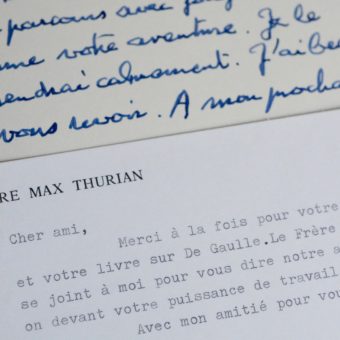 parcours avec
me votre aventure. Je le
endrai calmement. J'ai be
vous revoir. A mon procha
RE MAX THURIAN
Cher ami,
Merci à la fois pour votre
et votre livre sur De Gaulle.Le Frère
se joint à moi pour vous dire notre a
on devant votre puissance de travail
Avec mon amitié pour vou